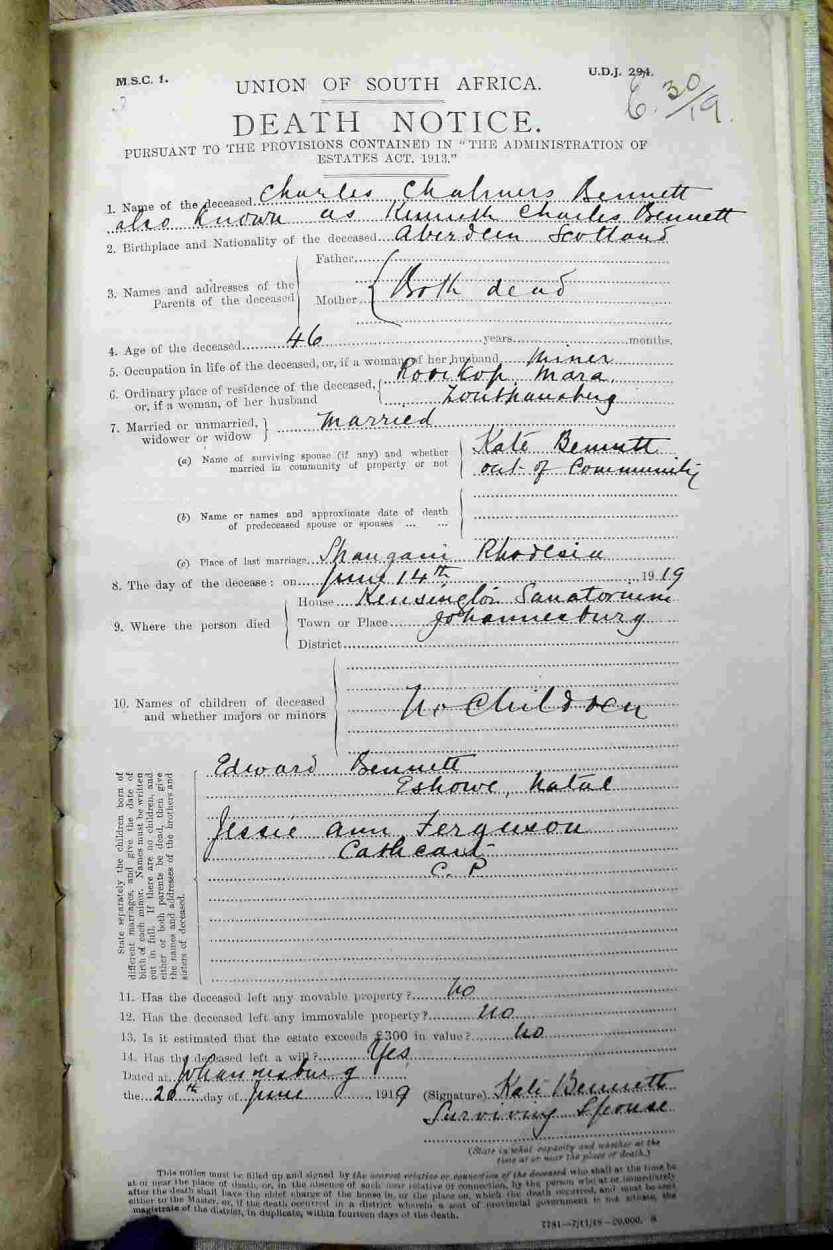 M.S.C. 1.
U.D.J. 294.
6. 30/19.
UNION OF SOUTH AFRICA.
DEATH NOTICE.
PURSUANT TO THE PROVISIONS CONTAINED IN "THE ADMINISTRATION OF
ESTATES ACT. 1913."
1. Name of the deceased Charles Chalmers Bennett
also known as Kenneth Charles Bennett
2. Birthplace and Nationality of the deceased Aberdeen Scotland
3. Names and addresses of the Parents of the deceased
Father
Mother
Both dead
4. Age of the deceased 46 years months.
5. Occupation in life of the deceased, or, if a woman, of her husband Miner
6. Ordinary place of residence of the deceased, Rooikop Mara,
or, if a woman, of her husband Zoutpansberg
7. Married or unmarried, widower or widow Married
(a) Name of surviving spouse (if any) and whether Kate Bennett
married in community of property or not out of Community
(b) Name or names and approximate date of death
of predeceased spouse or spouses ... ...
(c) Place of last marriage Shangani Rhodesia
8. The day of the decease: on June 14th 1919
9. Where the person died
House Kensington Sanatorium
Town or Place Johannesburg
District
10. Names of children of deceased
and whether majors or minors
No Children
State separately the children born of
different marriages, and give the date of
birth of each minor. Names must be written
out in full. If there are no children, and
either or both parents be dead, then give
the names and addresses of the brothers and
sisters of deceased.
Edward Bennett
Eshowe, Natal
Jessie Ann Ferguson
Cathcart
C. P
11. Has the deceased left any movable property? No
12. Has the deceased left any immovable property? No
13. Is it estimated that the estate exceeds £300 in value? No
14. Has the deceased left a will? Yes
Dated at Johannesburg
the 20th day of June, 1919
(Signature) Kate Bennett
Surviving Spouse
(State in what capacity and whether at the
time at or near the place of death.)
This notice must be filled up and signed by the nearest relative or connection of the deceased who shall at the time be
at or near the place of death, or, in the absence of such near relative or connection, by the person who at or immediately
after the death shall have the chief charge of the house in, or the place on, which the death occurred, and must be sent
either to the Master, or, if the death occurred in a district wherein a seat of provincial government is not situate, the
magistrate of the district, in duplicate, within fourteen days of the death.
7181—7/11/18—20,000. S